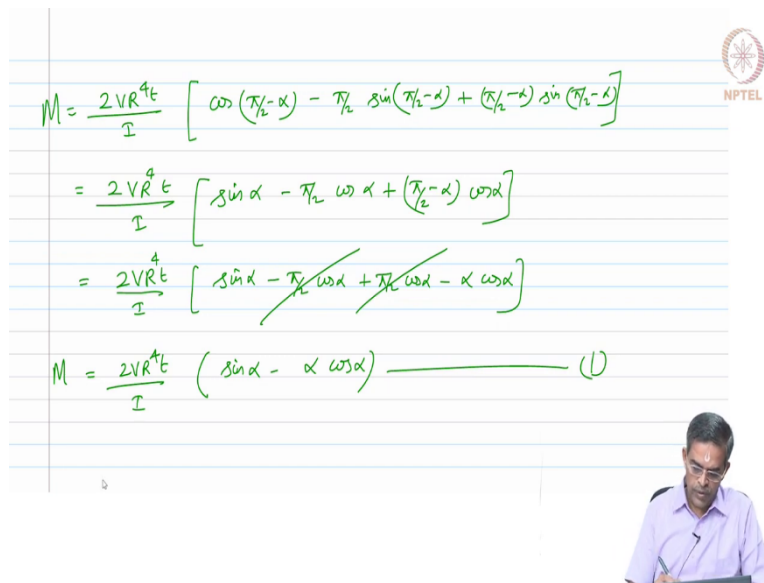 NPTEL
M = 2VR⁴t/I [cos(π/2-α) - π/2 sin(π/2-α) + (π/2-α) sin(π/2-α)]
= 2VR⁴t/I [sinα - π/2 cosα + (π/2-α) cosα]
= 2VR⁴t/I [sinα - π/2 cosα + π/2 cosα - α cosα]
M = 2VR⁴t/I (sinα - α cosα) ———— (1)